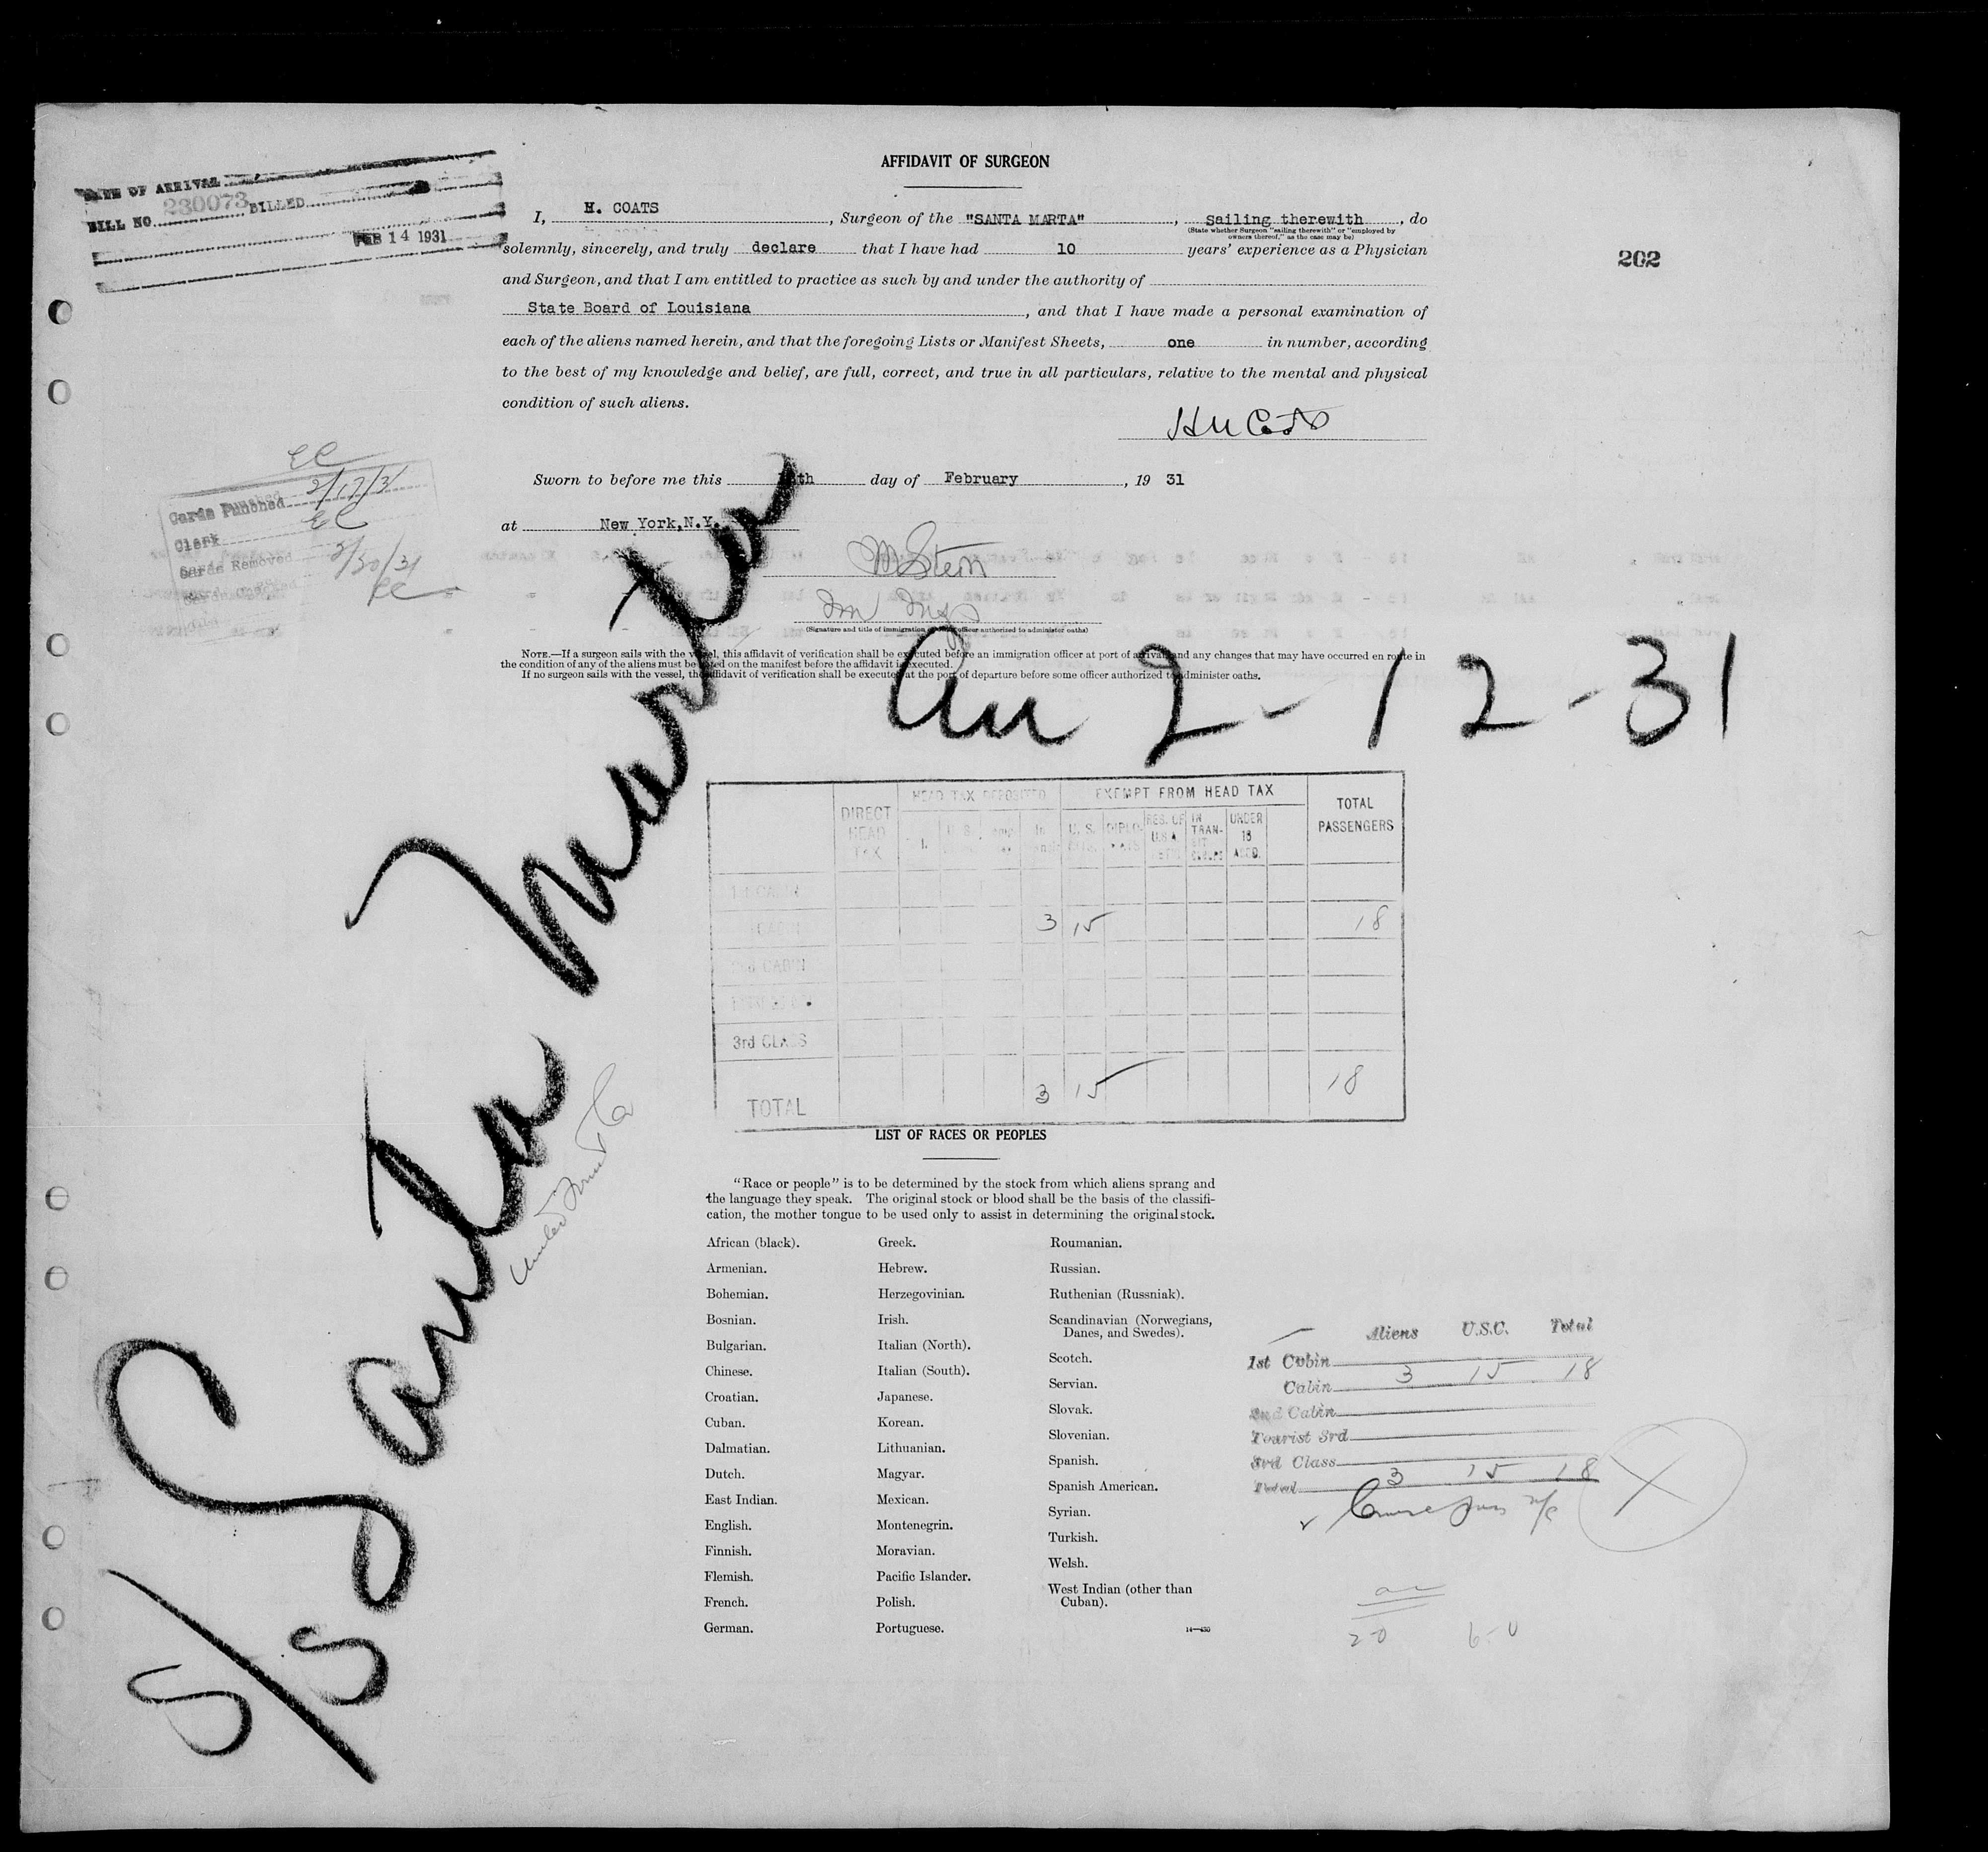 AFFIDAVIT OF SURGEON
DATE OF ARRIVAL
BILL NO. 230073 BILLED
FEB 14 1931
202
I, H. COATS, Surgeon of the "SANTA MARTA", sailing therewith, do
(State whether Surgeon "sailing therewith" or "employed by
owners thereof," as the case may be)
solemnly, sincerely, and truly declare that I have had 10 years' experience as a Physician
and Surgeon, and that I am entitled to practice as such by and under the authority of
State Board of Louisiana, and that I have made a personal examination of
each of the aliens named herein, and that the foregoing Lists or Manifest Sheets, one in number, according
to the best of my knowledge and belief, are full, correct, and true in all particulars, relative to the mental and physical
condition of such aliens.
Sworn to before me this th day of February, 19 31
at New York, N.Y.
M Stern
(Signature and title of immigration officer authorized to administer oaths)
Cards Punched 2/17/31
Clerk EC
Cards Removed
NOTE.—If a surgeon sails with the vessel, this affidavit of verification shall be executed before an immigration officer at port of arrival and any changes that may have occurred en route in
the condition of any of the aliens must be noted on the manifest before the affidavit is executed.
If no surgeon sails with the vessel, the affidavit of verification shall be executed at the port of departure before some officer authorized to administer oaths.
S/S Santa Marta
2-12-31
United Fruit Co
DIRECT HEAD TAX
HEAD TAX DEPOSITED
EXEMPT FROM HEAD TAX
TOTAL PASSENGERS
U. S.
DIPLO-
RES. OF U.S.A.
IN TRAN-SIT
UNDER 16 ACCD.
1st CABIN
CABIN 3 15 18
2nd CABIN
3rd CLASS
TOTAL 3 15 18
LIST OF RACES OR PEOPLES
"Race or people" is to be determined by the stock from which aliens sprang and
the language they speak. The original stock or blood shall be the basis of the classifi-
cation, the mother tongue to be used only to assist in determining the original stock.
African (black).
Armenian.
Bohemian.
Bosnian.
Bulgarian.
Chinese.
Croatian.
Cuban.
Dalmatian.
Dutch.
East Indian.
English.
Finnish.
Flemish.
French.
German.
Greek.
Hebrew.
Herzegovinian.
Irish.
Italian (North).
Italian (South).
Japanese.
Korean.
Lithuanian.
Magyar.
Mexican.
Montenegrin.
Moravian.
Pacific Islander.
Polish.
Portuguese.
Roumanian.
Russian.
Ruthenian (Russniak).
Scandinavian (Norwegians,
Danes, and Swedes).
Scotch.
Servian.
Slovak.
Slovenian.
Spanish.
Spanish American.
Syrian.
Turkish.
Welsh.
West Indian (other than
Cuban).
Aliens U.S.C. Total
1st Cabin
Cabin 3 15 18
2nd Cabin
Tourist 3rd
3rd Class
Total 3 15 18